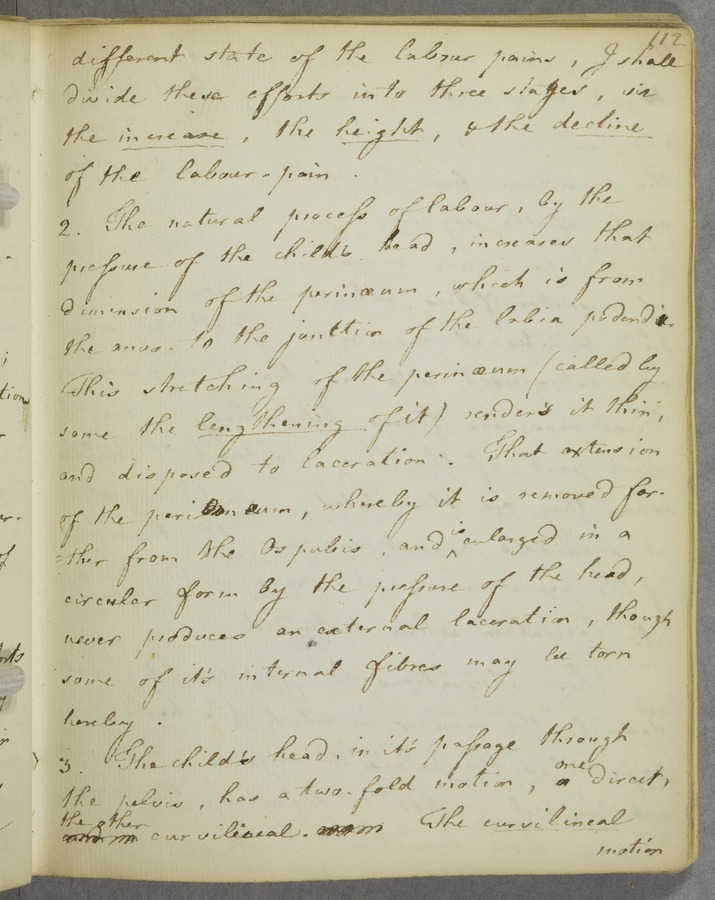 112
different state of the labour pains, I shall
divide these efforts into three stages, viz
the increase, the height, & the decline
of the labour-pain.
2. The natural process of labour, by the
pressure of the child's head, increases that
dimension of the perinæum, which is from
the anus to the junttion of the labia pudendi.
This stretching of the perinæum (called by
some the lengthening of it) renders it thin,
and disposed to laceration. That extension
of the perinæum, whereby it is removed far-
=ther from the Os pubis, and is enlarged in a
circular form by the pressure of the head,
never produces an external laceration, though
some of it's internal fibres may be torn
hereby.
3. The child's head, in it's passage through
the pelvis, has a two-fold motion, one direct,
the other curvilineal. The curvilineal
motion